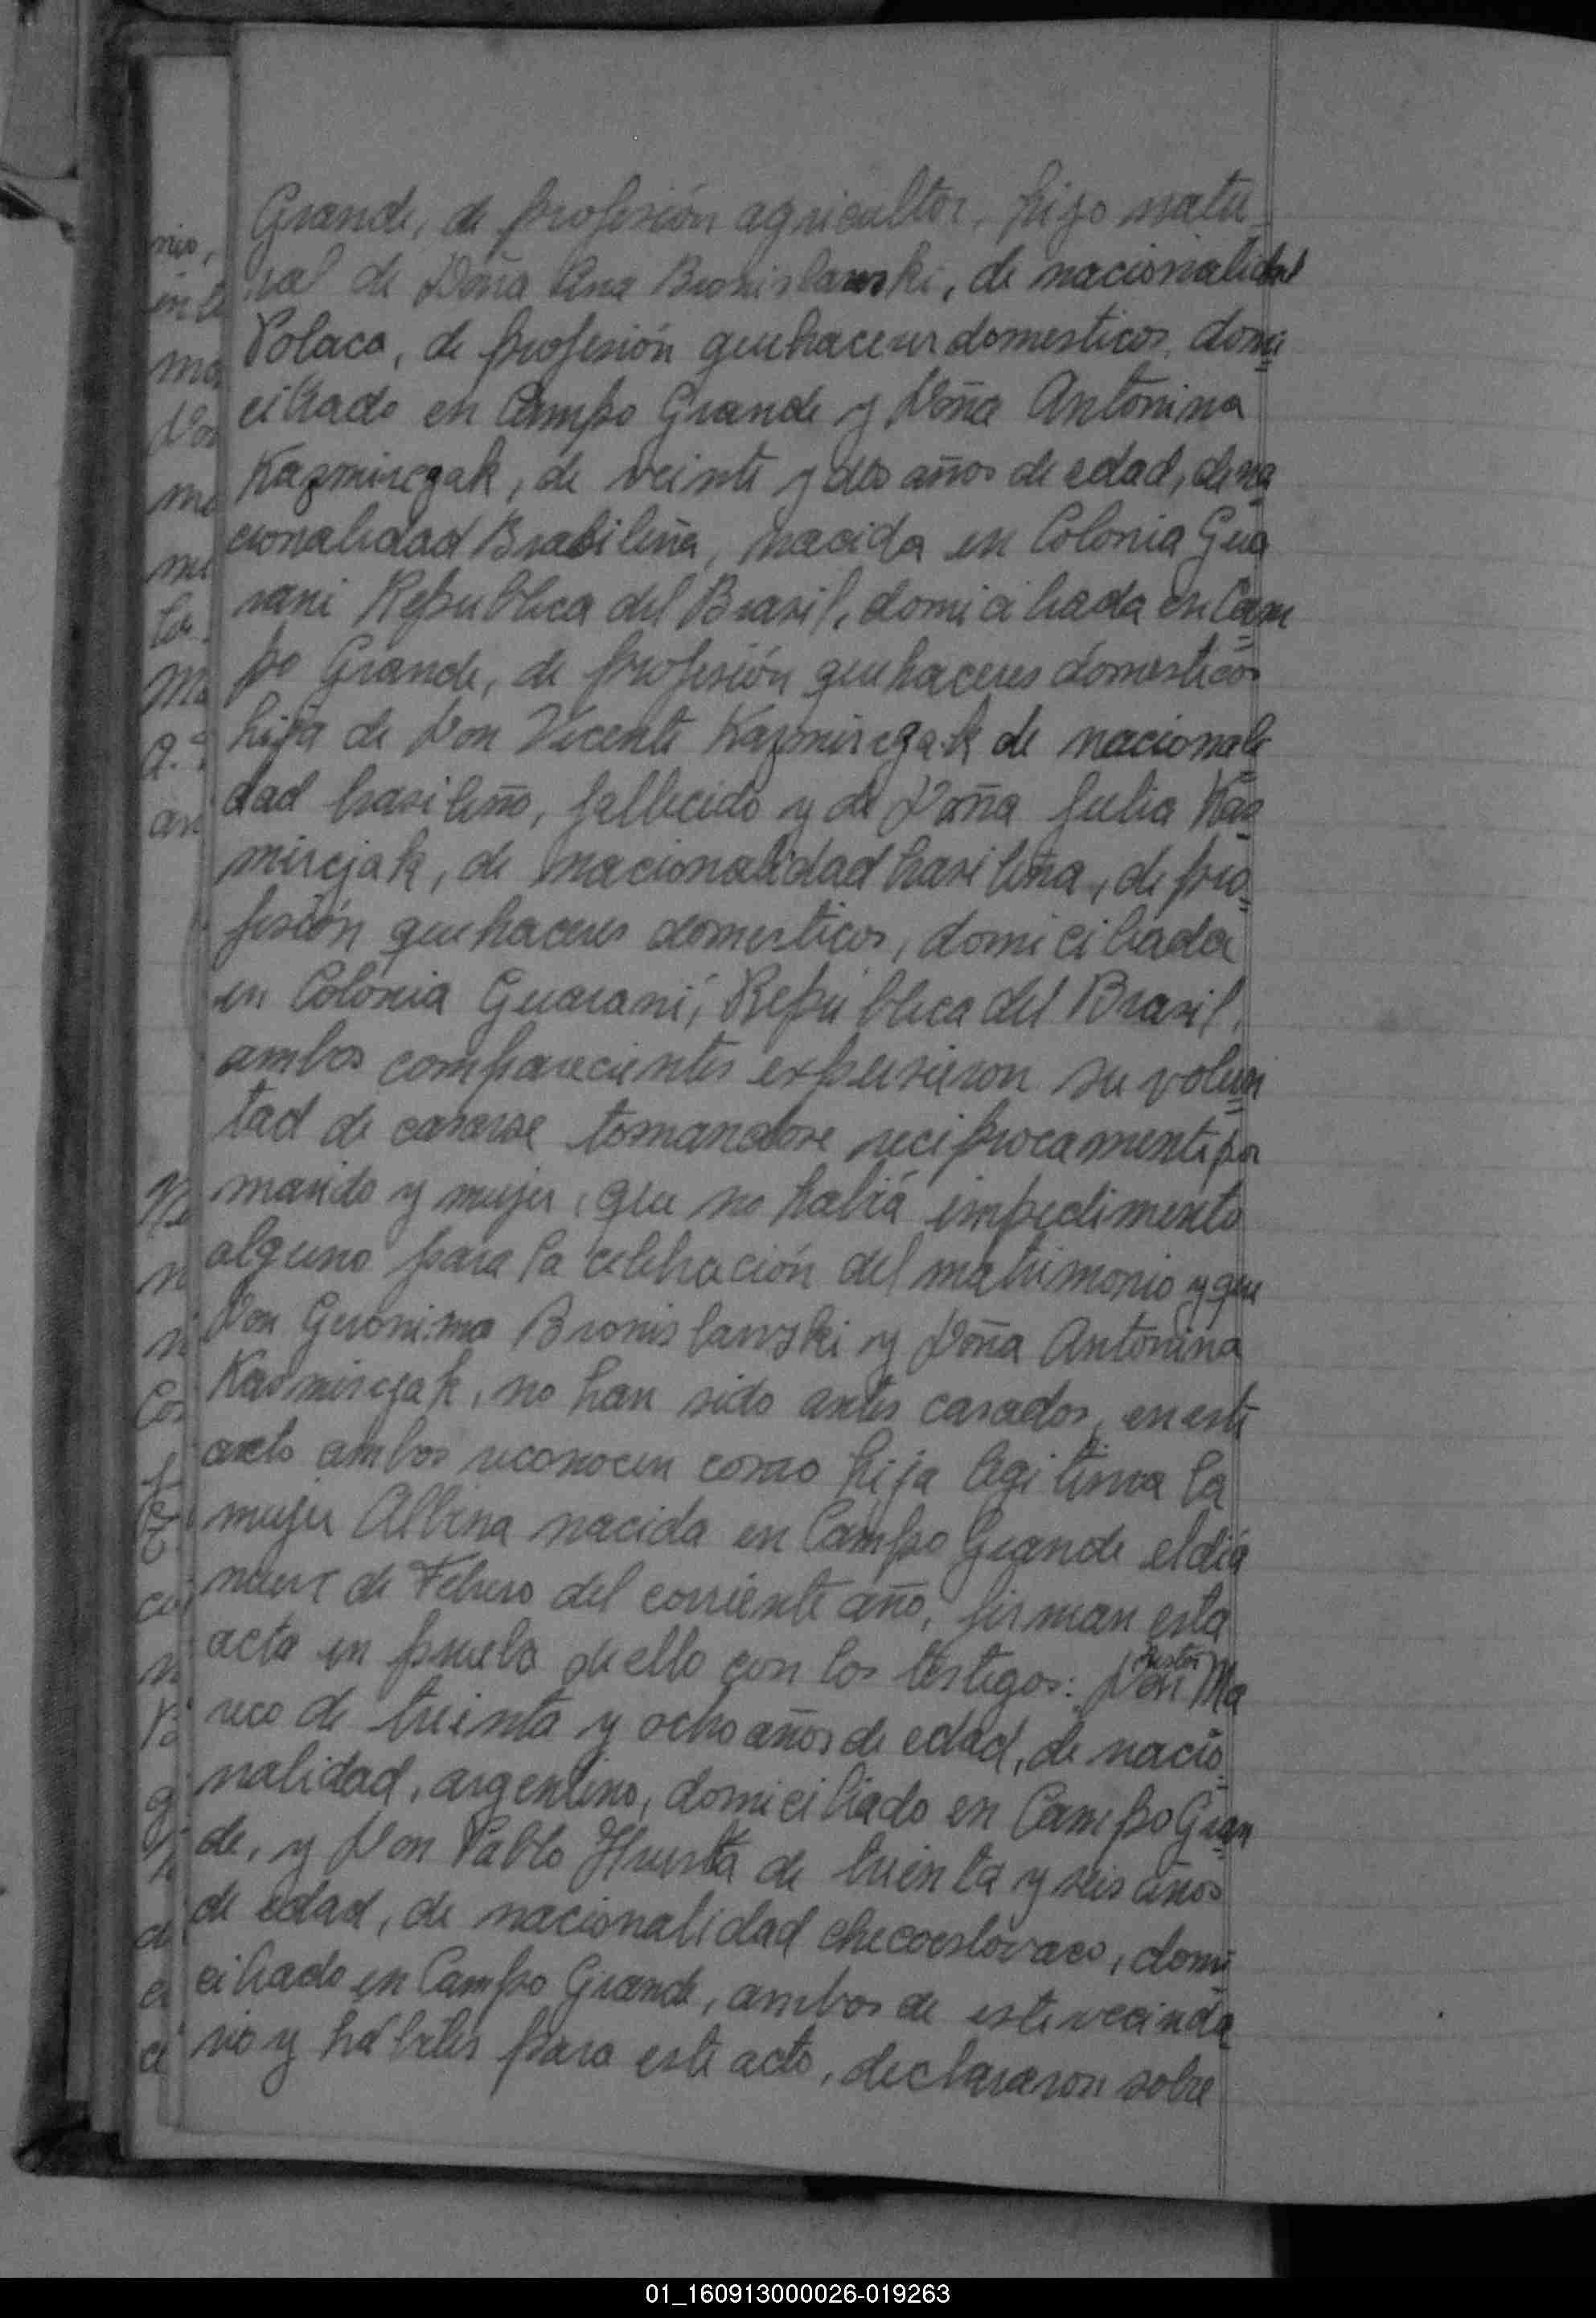 Grande, de profesión agricultor, hijo natu
ral de Doña Ana Bronislawski, de nacionalidad
Polaca, de profesión quehaceres domesticos, domi
ciliado en Campo Grande y Doña Antonina
Kazmirczak, de veinte y dos años de edad, de na
cionalidad Brasileña, nacida en Colonia Gua
rani Republica del Brasil, domiciliada en Cam
po Grande, de profesión quehaceres domesticos
hija de Don Vicente Kazmirczak de nacionali
dad brasileño, fallecido y de Doña Julia Kas
mirczak, de nacionalidad brasileña, de pro
fesión quehaceres domesticos, domiciliada
en Colonia Guarani, República del Brasil,
ambos comparecientes expusieron su volun
tad de casarse tomandose reciprocamente por
marido y mujer, que no había impedimento
alguno para la celebración del matrimonio y que
Don Geronimo Bronislawski y Doña Antonina
Kasmirczak, no han sido antes casados, en este
acto ambos reconocen como hija legitima la
mujer Albina nacida en Campo Grande el día
nueve de Febrero del corriente año, firman esta
acta en prueba de ello con los testigos: Don Nestor Ma
reco de treinta y ocho años de edad, de nacio
nalidad, argentino, domiciliado en Campo Gran
de, y Don Pablo de treinta y seis años
de edad, de nacionalidad checoeslovaco, domi
ciliado en Campo Grande, ambos de este vecinda
rio y hábiles para este acto, declararon sobre
01_160913000026-019263